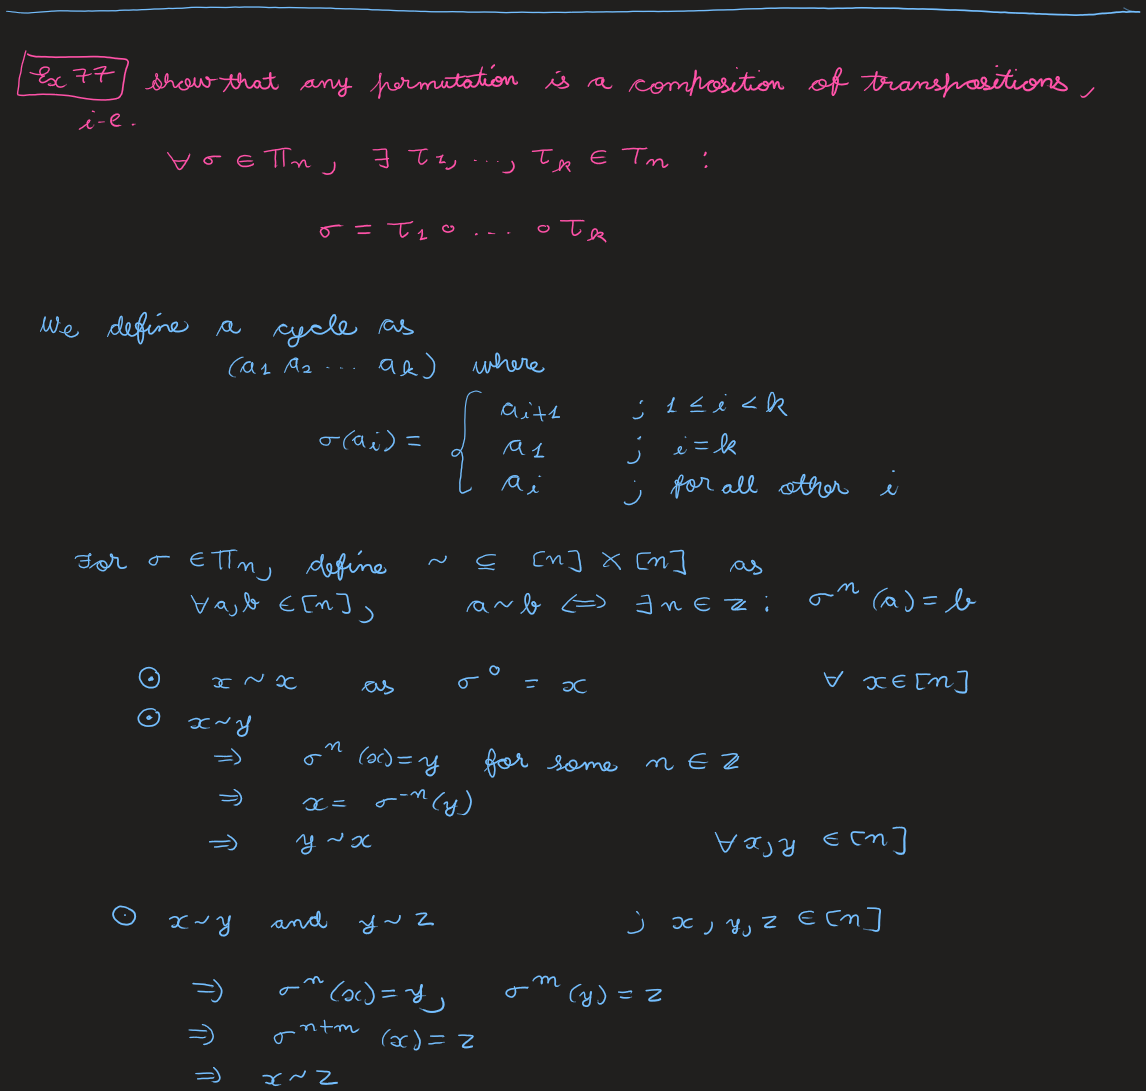 Ex 77 show that any permutation is a composition of transpositions,
i.e.
∀ σ ∈ Πn, ∃ τ1, ..., τk ∈ Tn :
σ = τ1 ∘ ... ∘ τk
We define a cycle as
(a1 a2 ... ak) where
σ(ai) = { ai+1 ; 1 ≤ i < k
a1 ; i = k
ai ; for all other i
For σ ∈ Πn, define ~ ⊆ [n] × [n] as
∀ a, b ∈ [n], a ~ b ⟺ ∃ n ∈ Z : σ^n (a) = b
⊙ x ~ x as σ^0 = x ∀ x ∈ [n]
⊙ x ~ y
⇒ σ^n (x) = y for some n ∈ Z
⇒ x = σ^-n (y)
⇒ y ~ x ∀ x, y ∈ [n]
⊙ x ~ y and y ~ z ; x, y, z ∈ [n]
⇒ σ^n (x) = y, σ^m (y) = z
⇒ σ^n+m (x) = z
⇒ x ~ z